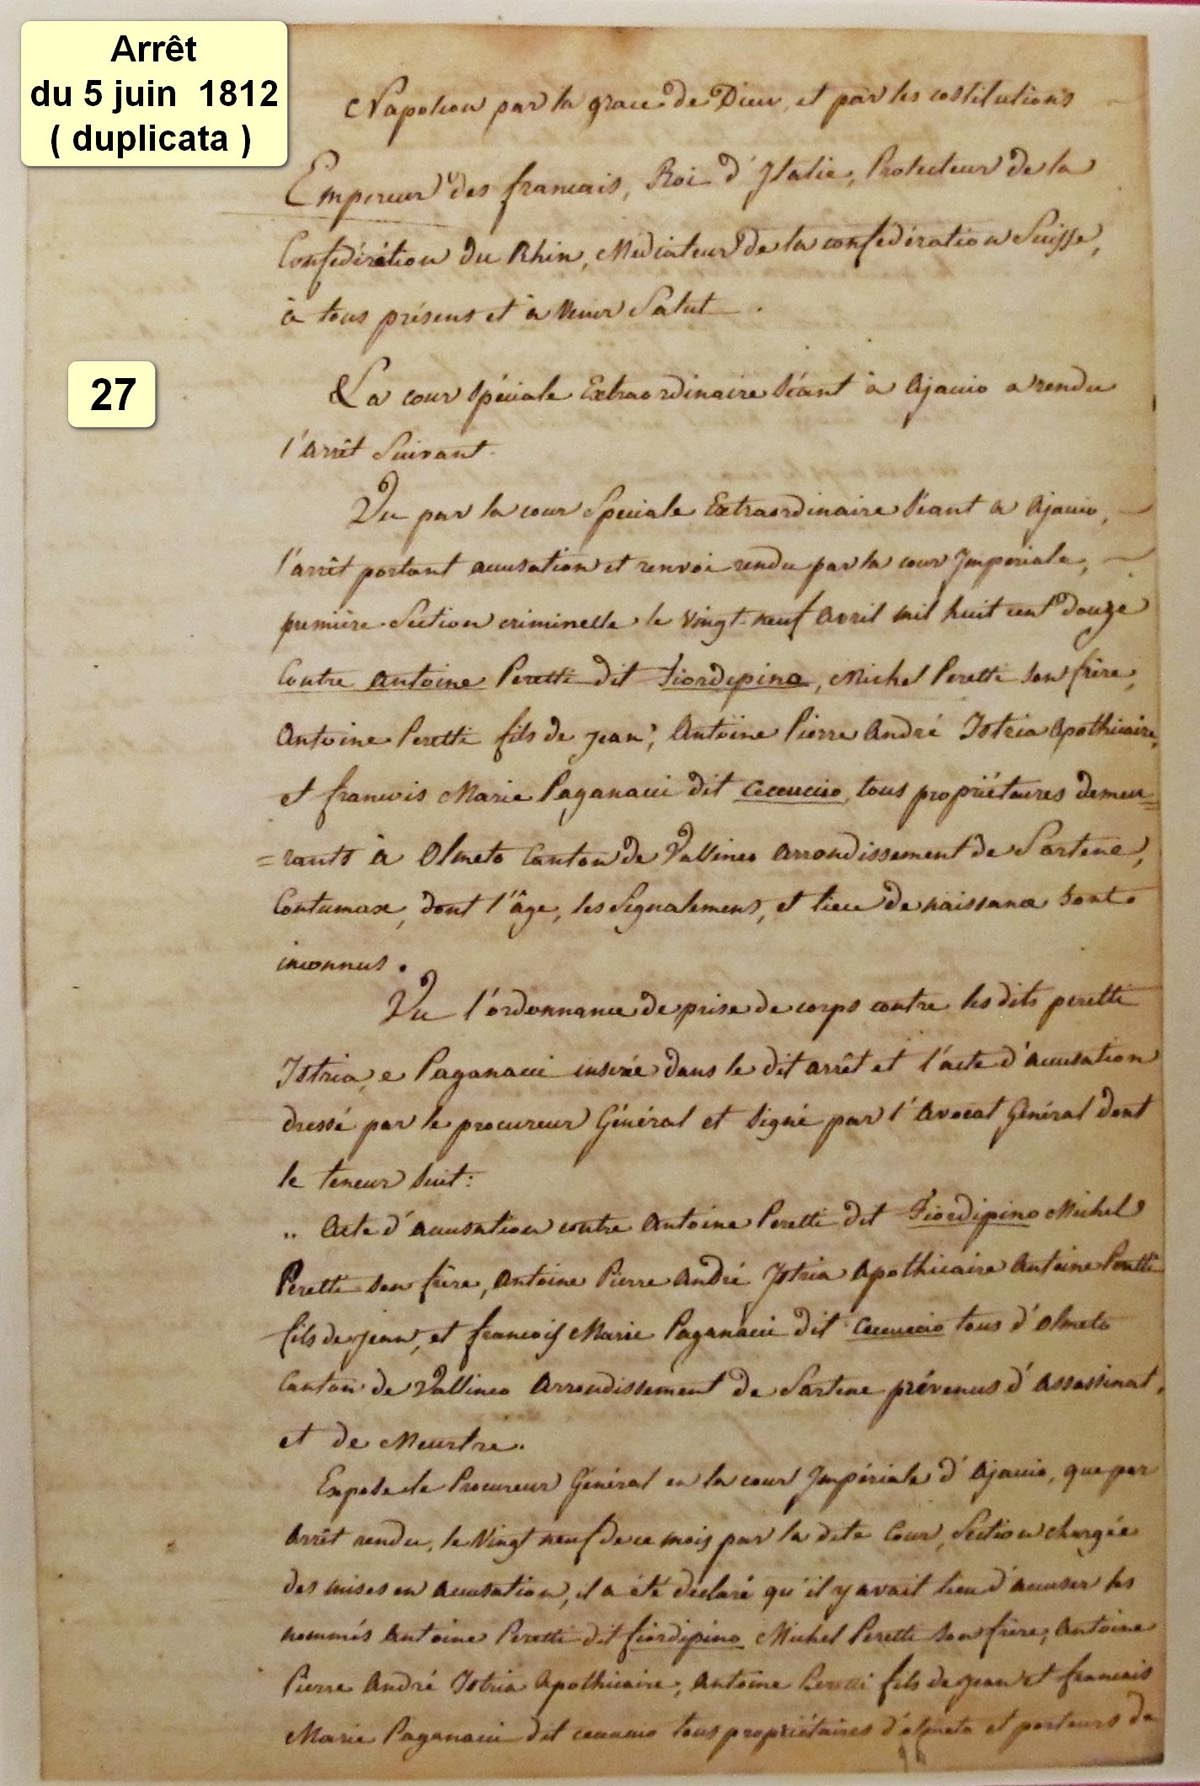 Arrêt
du 5 juin 1812
( duplicata )
27
Napoleon par la grace de Dieu, et par les costitutions
Empereur des francais, Roi d'Italie, Protecteur de la
Confédération du Rhin, Médiateur de la confédération Suisse,
à tous présens et à venir Salut.
La cour spéciale Extraordinaire séant à Ajaccio a rendu
l'arrêt Suivant.
Vu par la cour Speciale Extraordinaire séant a Ajaccio,
l'arrêt portant accusation et renvoi rendu par la cour Imperiale,
première Section criminelle le vingt neuf avril mil huit cent douze
Contre Antoine Peretti dit Fiordipino, Michel Peretti son frère,
Antoine Peretti fils de jean, Antoine Pierre André Istria Apothicaire,
et francois Marie Paganacci dit Ceccuccio, tous propriétaires demeu=
=rants à Olmeto Canton de Vallinco arrondissement de Sartene,
Contumax, dont l'âge, les Signalemens, et lieu de naissance sont
inconnus.
Vu l'ordonnance de prise de corps contre les dits peretti
Istria, e Paganacci insérée dans le dit arrêt et l'acte d'accusation
dressé par le procureur Général et signé par l'Avocat Général dont
le teneur suit:
,, Acte d'accusation contre Antoine Peretti dit Fiordipino Michel
Peretti son frère, Antoine Pierre André Istria Apothicaire Antoine Peretti
fils de jean, et francois Marie Paganacci dit Ceccuccio tous d'olmeto
Canton de Vallinco Arrondissement de Sartene prévenus d'assassinat,
et de Meurtre.
Expose le Procureur Général en la cour Impériale d'Ajaccio, que par
Arrêt rendu, le Vingt neuf de ce mois par la dite Cour, Section chargée
des mises en accusation, il a été déclaré qu'il y avait lieu d'accuser les
nommés Antoine Peretti dit fiordipino Michel Peretti son frère, Antoine
Pierre André Istria Apothicaire, Antoine Peretti fils de jean et francois
Marie Paganacci dit ceccuccio tous propriétaires d'olmeto et porteurs de